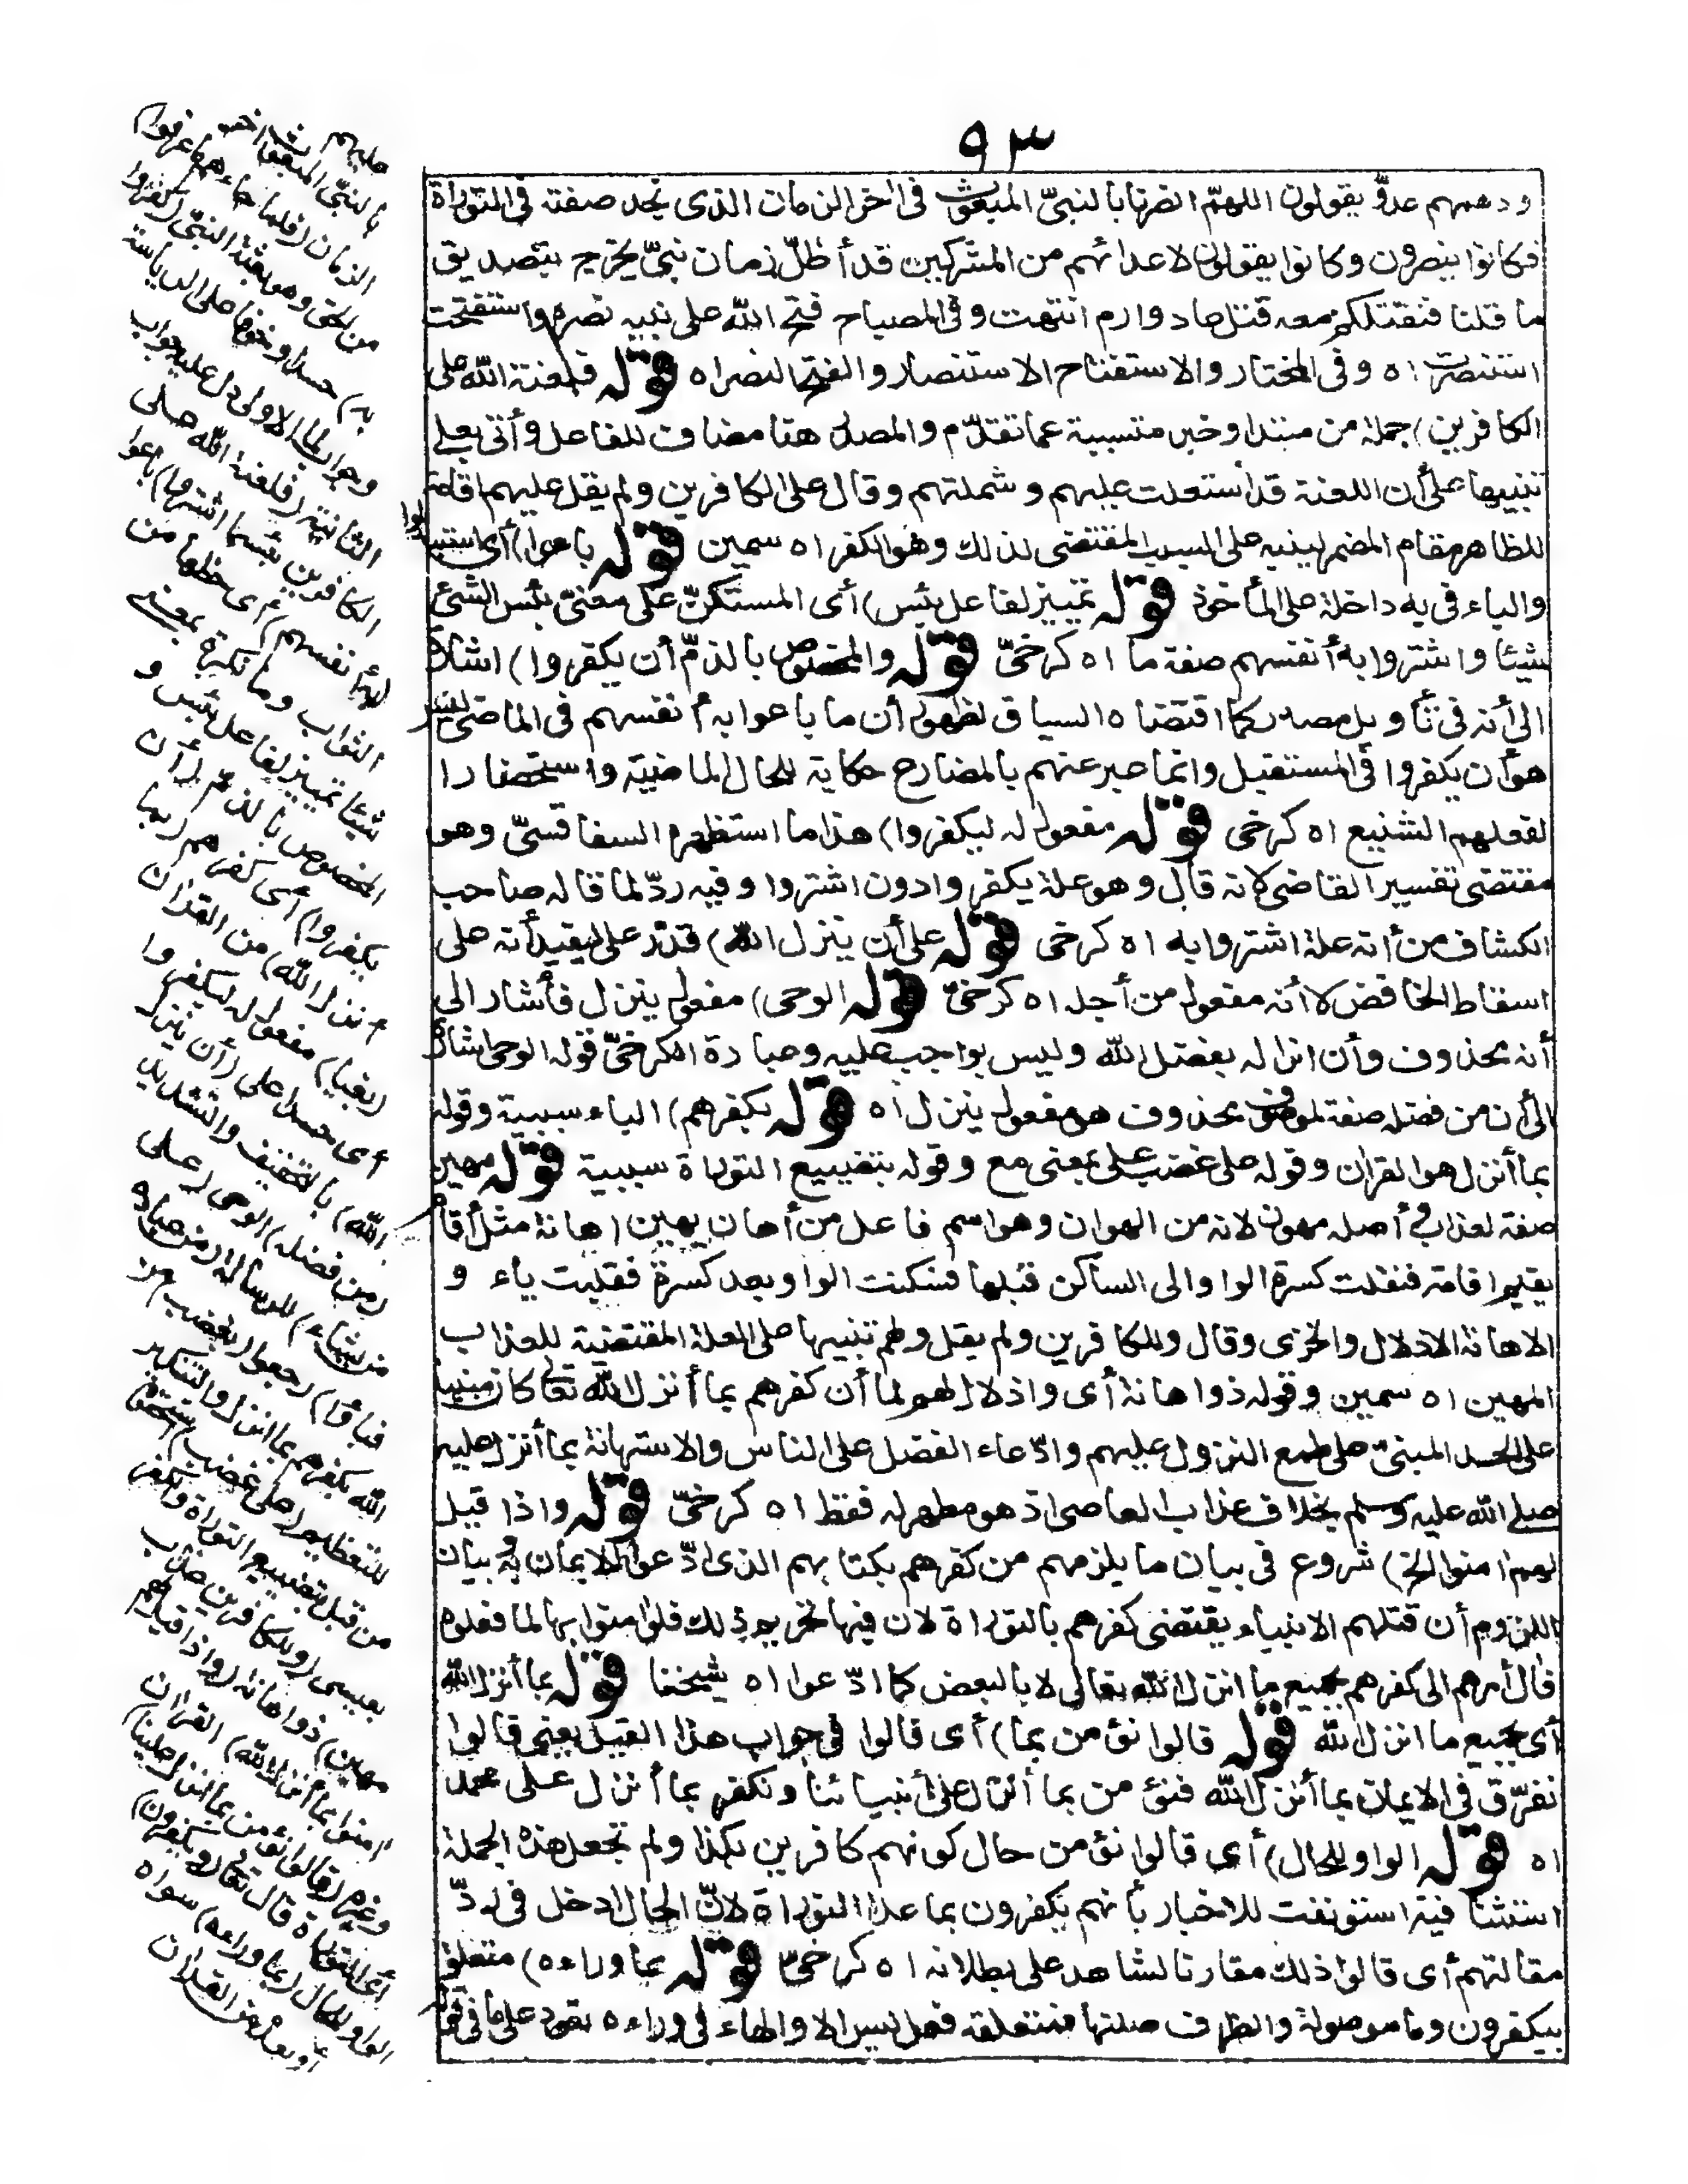 ٩٣
ودهمهم عدوّ يقولون اللهمّ انصرنا بالنبىّ المبعوث فى اخر الزمان الذى نجد صفته فى التوراة
فكانوا ينصرون وكانوا يقولون لاعدائهم من المشركين قد أظلّ زمان نبىّ يخرج بتصديق
ما قلنا فنقتلكم معه قتل عاد وارم انتهت وفى المصباح فتح الله على نبيه نصره واستفتحت
استنصرت اه وفى المختار والاستفتاح الاستنصار والفتح النصر اه قوله فلعنة الله على
الكافرين) جملة من مبتدا وخبر متسببة عما تقدّم والمصدر هنا مضاف للفاعل وأتى بعلى
تنبيها على أن اللعنة قد استعلت عليهم وشملتهم وقال على الكافرين ولم يقل عليهم اقامة
للظاهر مقام المضمر لينبه على السبب المقتضى لذلك وهو الكفر اه سمين قوله باعوا) أى استبدلوا
والباء فى به داخلة على المأخوذ قوله تمييز لفاعل بئس) أى المستكنّ على معنى بئس الشئ
شيئا واشتروا به أنفسهم صفة ما اه كرخىّ قوله والمخصوص بالذمّ أن يكفروا) اشارة
الى أنه فى تأويل مصدر كما اقتضاه السياق لظهور أن ما باعوا به أنفسهم فى الماضى ليس
هو أن يكفروا فى المستقبل وانما عبر عنهم بالمضارع حكاية للحال الماضية واستحضارا
لفعلهم الشنيع اه كرخى قوله مفعول له ليكفروا) هذا ما استظهره السفاقسىّ وهو
مقتضى تفسير القاضى لانه قال وهو علة يكفروا دون اشتروا وفيه ردّ لما قاله صاحب
الكشاف من أنه علة اشتروا به اه كرخى قوله على أن ينزل الله) قدّر على ليفيد أنه على
اسقاط الخافض لا أنه مفعول من أجله اه كرخىّ قوله الوحى) مفعول ينزل فأشار الى
أنه محذوف وأن انزاله بفضل الله وليس بواجب عليه وعبارة الكرخىّ قوله الوحى اشارة
الى أن من فضله صفة لموصوف محذوف هو مفعول ينزل اه قوله بكفرهم) الباء سببية وقوله
بما أنزل هو القران وقوله على غضب على بمعنى مع وقوله بتضييع التوراة سببية قوله مهين
صفة لعذاب وأصله مهون لانه من الهوان وهو اسم فاعل من أهان يهين اهانة مثل أقام
يقيم اقامة فنقلت كسرة الواو الى الساكن قبلها فسكنت الواو بعد كسرة فقلبت ياء و
الاهانة الاذلال والخزى وقال وللكافرين ولم يقل ولهم تنبيها على العلة المقتضية للعذاب
المهين اه سمين وقوله ذو اهانة أى واذلال لهم لما أن كفرهم بما أنزل الله تعالى كان مبنيا
على الحسد المبنىّ على طمع النزول عليهم وادّعاء الفضل على الناس والاستهانة بما أنزل عليه
صلى الله عليه وسلم بخلاف عذاب العاصى اذ هو مطهر له فقط اه كرخىّ قوله واذا قيل
لهم امنوا الخ) شروع فى بيان ما يلزمهم من كفرهم بكتابهم الذى ادّعوا الايمان به بيان
اللزوم أن قتلهم الانبياء يقتضى كفرهم بالتوراة لان فيها تحريم ذلك فلو امنوا بها لما فعلوه
فال أمرهم الى كفرهم بجميع ما انزل الله تعالى لا بالبعض كما ادّعوا اه شيخنا قوله بما أنزل الله
أى بجميع ما انزل الله قوله قالوا نؤمن بما) أى قالوا فى جواب هذا القيل يعنى قالوا
نفرّق فى الايمان بما أنزل الله فنؤمن بما أنزل على أنبيائنا ونكفر بما أنزل على محمد
اه قوله الواو للحال) أى قالوا نؤمن حال كونهم كافرين بكذا ولم تجعل هذه الجملة
استئنافية استؤنفت للاخبار بأنهم يكفرون بما عدا التوراة لانّ الحال ادخل فى ردّ
مقالتهم أى قالوا ذلك مقارنا لشاهد على بطلانه اه كرخىّ قوله بما وراءه) متعلق
بيكفرون وما موصولة والظرف صلتها فمتعلقه فعل ليس الا والهاء فى وراءه تعود على ما فى قوله
عليهم
بالنبىّ المبعوث اخر
الزمان (فلما جاءهم ما عرفوا)
من الحق وهو بعثة النبىّ (كفروا
به) حسدا وخوفا على الرياسة
وجواب لما الاولى دل عليه جواب
الثانية (فلعنة الله على
الكافرين بئسما اشتروا) باعوا
(به أنفسهم) أى حظها من
الثواب وما نكرة بمعنى
شيئا تمييز لفاعل بئس و
المخصوص بالذم (أن
يكفروا) أى كفرهم (بما
أنزل الله) من القران
(بغيا) مفعول له ليكفروا
أى حسدا على (أن ينزل
الله) بالتخفيف والتشديد
(من فضله) الوحى (على
من يشاء) للرسالة (من عباده
فباؤا) رجعوا (بغضب) من
الله بكفرهم بما أنزل والتنكير
للتعظيم (على غضب) استحقوه
من قبل بتضييع التوراة والكفر
بعيسى (وللكافرين عذاب
مهين) ذو اهانة (واذا قيل لهم
امنوا بما أنزل الله) القران
وغيره (قالوا نؤمن بما أنزل علينا)
أى التوراة قال تعالى (ويكفرون)
الواو للحال (بما وراءه) سواه
أو بعده من القران